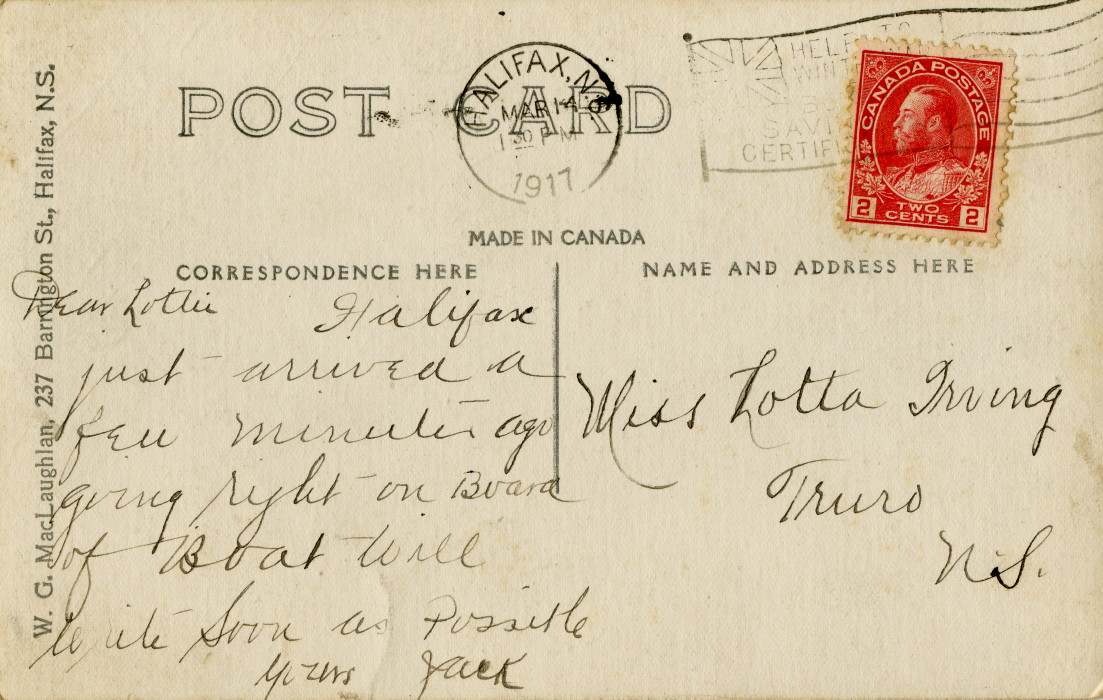 POST CARD
HALIFAX, N.S.
MAR 14
1 30 PM
1917
HELP TO
WIN
SAVI
CERTIF
CANADA POSTAGE
2 TWO CENTS 2
MADE IN CANADA
CORRESPONDENCE HERE
NAME AND ADDRESS HERE
W. G. MacLaughlan, 237 Barrington St., Halifax, N.S.
Dear Lottie Halifax
just arrived a
few minutes ago
going right on Board
of Boat Will
write Soon as Possible
yours Jack
Miss Lotta Irving
Truro
N.S.